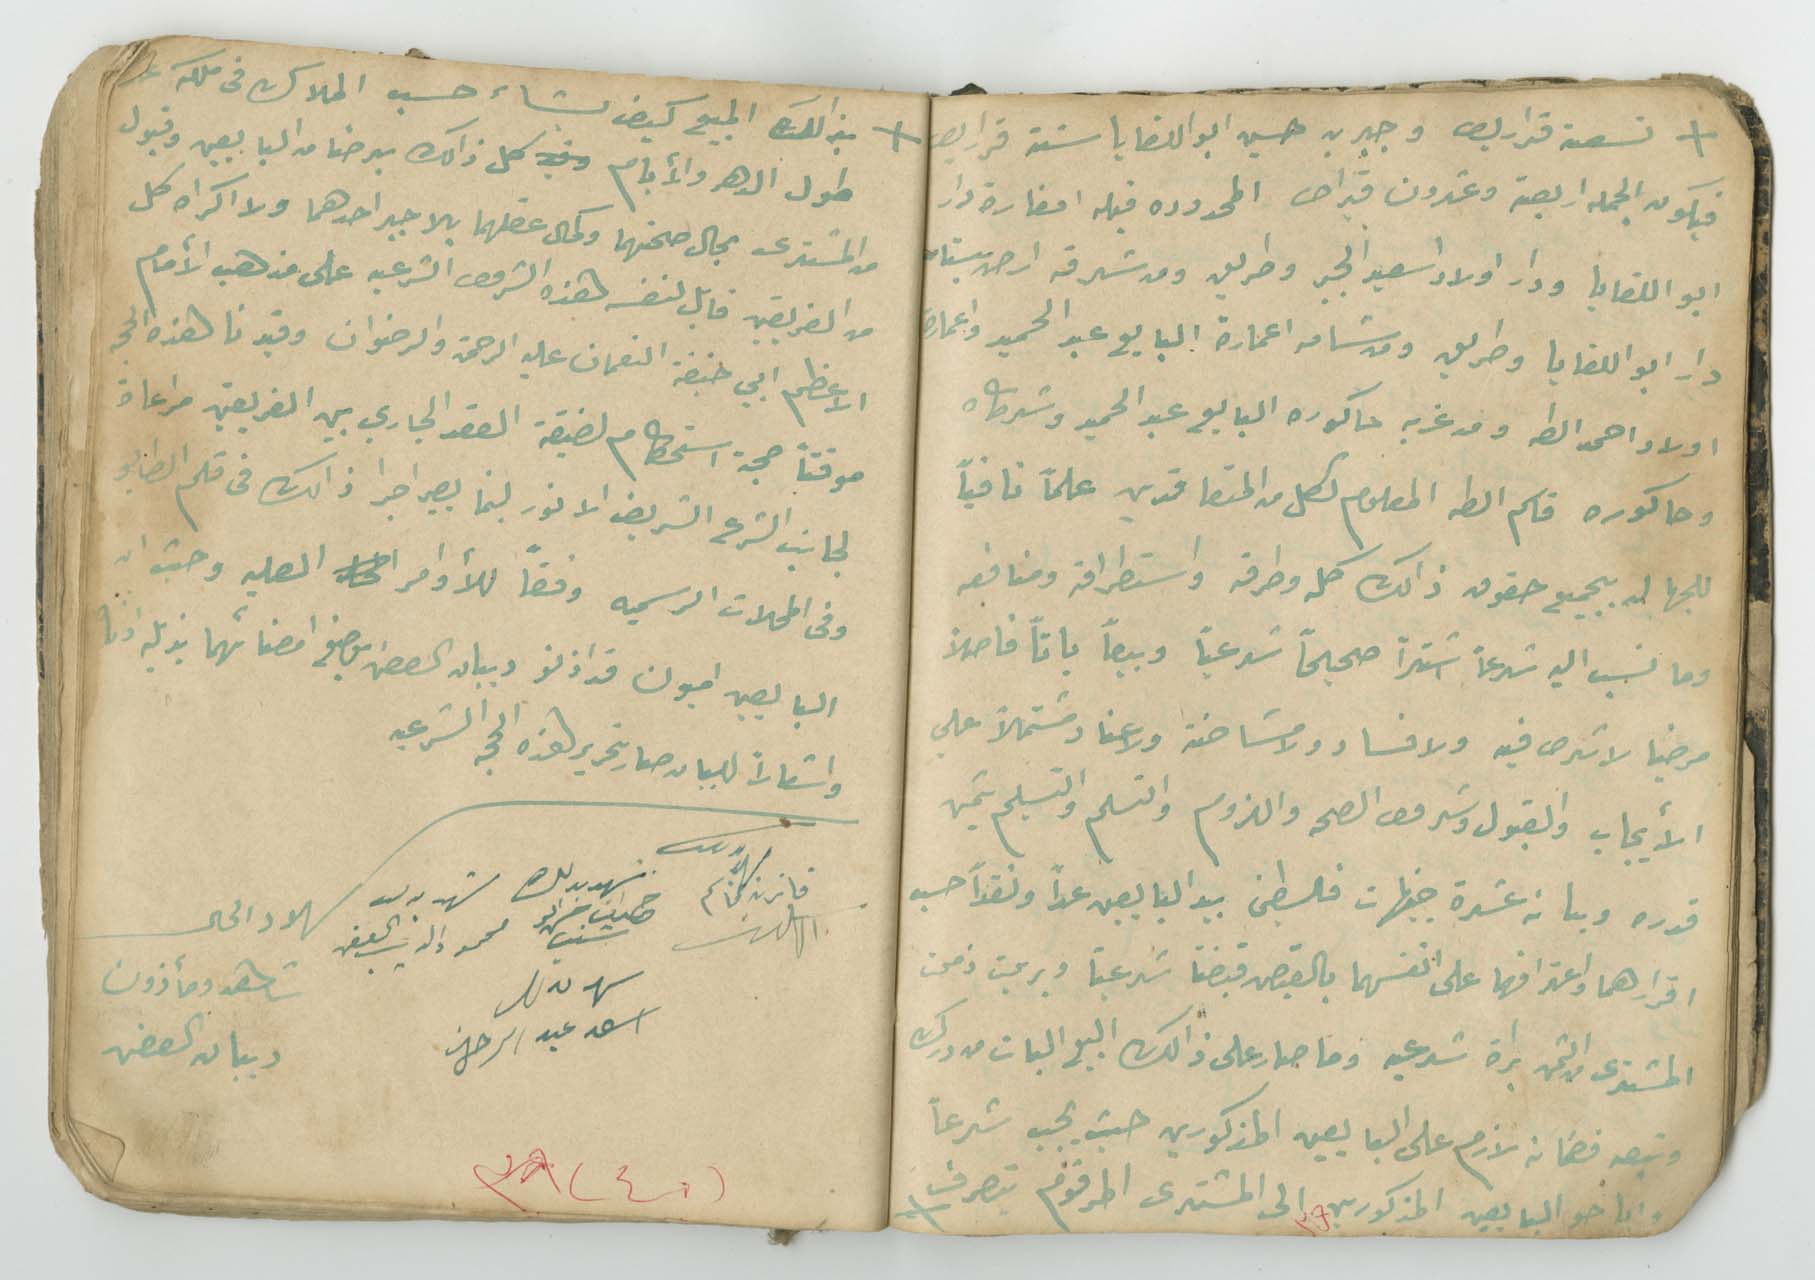 + تسعة قراريط وجبر بن حسين ابو اللفايا ستة قراريط
فيكون الجمله اربعة وعشرون قيراط المحدوده قبله امغارة دار
ابو اللفايا ودار اولاد اسعيد الجبر وطريق ومن شرقه ارض بستان
دار ابو اللفايا وطريق ومن شامه اعمارة البايع عبد الحميد واعمارة
اولاد احمد الطه ومن غربه حاكوره البايع عبد الحميد وشركاه
وحاكوره قاسم الطه المعلوم لكل من المتعاقدين علماً نافياً
للجهاله بجميع حقوق ذالك كله وطرقه واستطراقه ومنافعه
وما نسب اليه شرعاً اشتراً صحيحاً شرعياً وبيعاً باتاً فاصلاً
مرضيا لا شرط فيه ولا فساد ولا مشاحنة ولا عناد مشتملاً على
الأيجاب والقبول وشروط الصحه واللزوم والتسلم والتسليم بثمن
قدره وبيانه عشرة جنيهات فلسطيني بيد البايعين عداً ونقداً حسب
اقرارهما واعترافهما على انفسهما بالقبض قبضاً شرعياً وبريت ذمت
المشتري من الثمن براة شرعيه وما صار على ذالك البيع البات من درك
وتبعه فضمانه لازم على البايعين المذكورين حيث يجب شرعاً
واباحو البايعين المذكورين الى المشترى المرقوم يتصرف +
٣٩
+ بذالك المبيع كيف يشاء حسب الملاك في ملكه
طول الدهر والأيام كل ذالك برضا من البايعين وقبول
من المشترى بحال صحتهما وكمال عقلهما بلا جبر احدهما ولا اكراه كل
من الفريقين قابل لنفسه هذه الشروط الشرعيه على مذهب الأمام
الاعظم ابي حنيفة النعمان عليه الرحمة والرضوان وقيدنا هذه الحجه
موقتاً حجة استحكام لضيقة العقد الجاري بين الفريقين مراعاة
لجانب الشرع الشريف الانور لبنما يصير اجرا ذالك في قلم الطابو
وفي المحلات الرسميه وفقاً للأوامر العليه وحيث ان
البايعين اميون قد اذنو ديبان العوض بوضع امضائهما بذيله
واشعاراً للبيان صار تحرير هذه الحجه الشرعيه
شهود الحال
شاهد ومأذون
ديبان العوض
شهد بذلك
محمود
شهد بذلك
شهد بذلك
اسعد عبد الرحمن
(٤٠) ٣٩